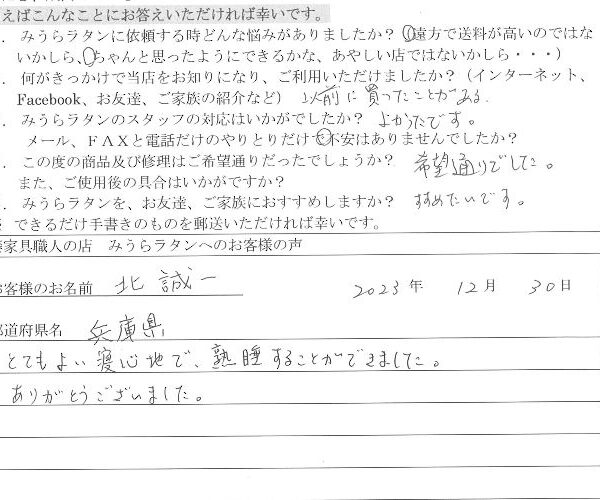 えばこんなことにお答えいただければ幸いです。
. みうらラタンに依頼する時どんな悩みがありましたか？（遠方で送料が高いのではな
いかしら、ちゃんと思ったようにできるかな、あやしい店ではないかしら・・・）
. 何がきっかけで当店をお知りになり、ご利用いただけましたか？（インターネット、
Facebook、お友達、ご家族の紹介など） 以前に買ったことがある.
. みうらラタンのスタッフの対応はいかがでしたか？ よかったです。
メール、ＦＡＸと電話だけのやりとりだけで不安はありませんでしたか？
. この度の商品及び修理はご希望通りだったでしょうか？ 希望通りでした。
また、ご使用後の具合はいかがですか？
. みうらラタンを、お友達、ご家族におすすめしますか？ すすめたいです。
できるだけ手書きのものを郵送いただければ幸いです。
家具職人の店 みうらラタンへのお客様の声
お客様のお名前 北 誠一 2023年 12月 30日
都道府県名 兵庫県
とてもよい寝心地で、熟睡することができました。
ありがとうございました。